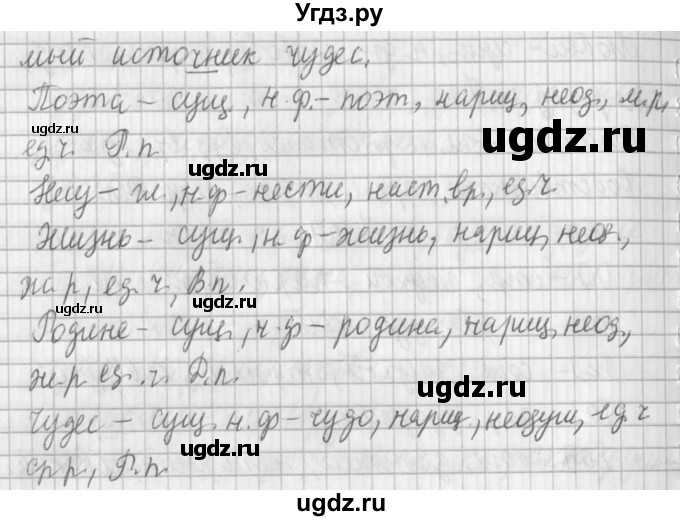 Угдз.ру
мый источник чудес.
Поэта – сущ, н.ф. – поэт, нариц, неод., м.р,
ugdz.ru
ugdz.ru
ед.ч. Р.п.
Несу – гл, н.ф – нести, наст вр, ед.ч.
Жизнь – сущ., н.ф – жизнь, нариц, неод.,
ugdz.ru
жр, ед. ч, В.п.
ugdz.ru
Родине – сущ, н.ф – родина, нариц, неод.,
ж.р ед. ч. Д.п.
ugdz.ru
Чудес – сущ. н.ф – чудо, нариц, неодуш, ед.ч
ср р, Р.п.
ugdz.ru
ugdz.ru